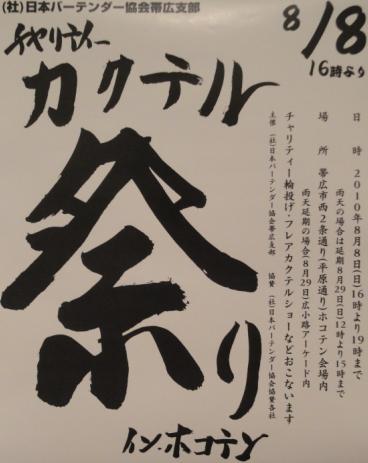 (社)日本バーテンダー協会帯広支部
8/8
16時より
チャリティー
カクテル
祭り
イン・ホコテン
日時 2010年8月8日(日)16時より19時まで
雨天の場合は延期8月29日(日)12時より15時まで
場所 帯広市西2条通り(平原通り)ホコテン会場内
雨天延期の場合(8月29日)広小路アーケード内
チャリティー輪投げ・フレアカクテルショーなどおこないます
主催 (社)日本バーテンダー協会帯広支部 協賛 (社)日本バーテンダー協会協賛各社